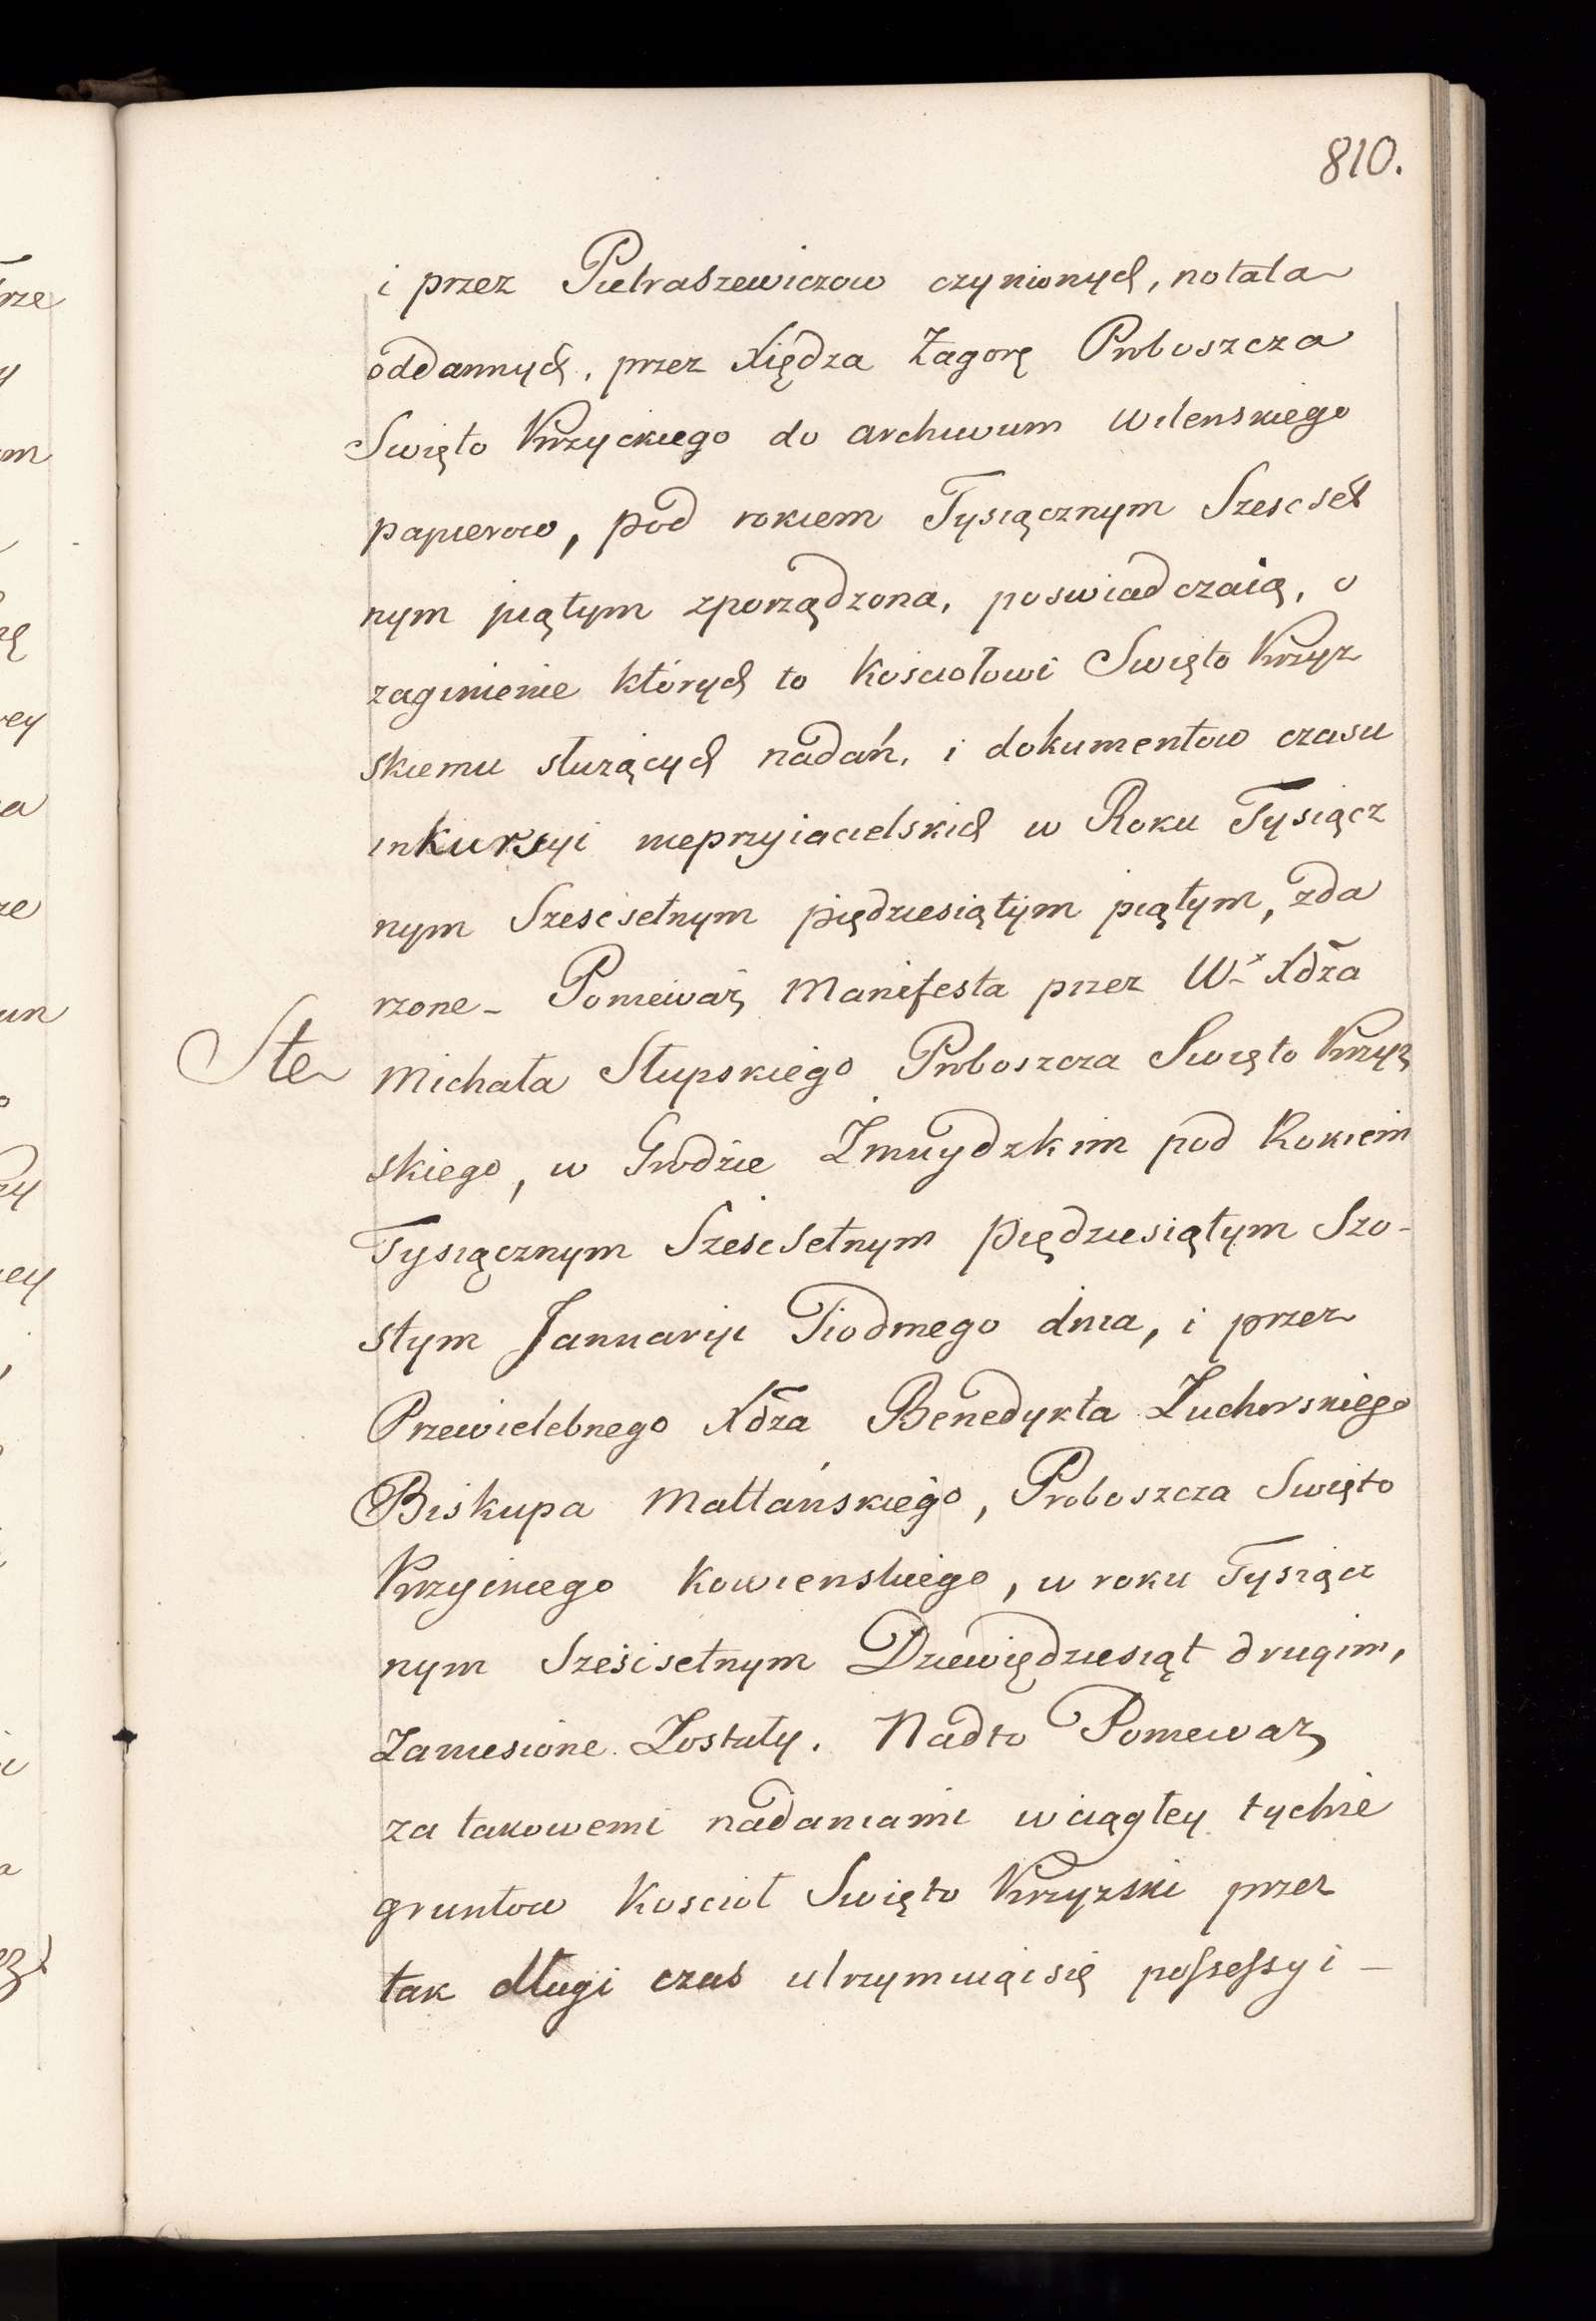 810.
i przez Pietraszewiczow czynionych, notata
oddannych, przez Xiędza Zagorę Proboszcza
Swięto Krzyckiego do archiwum Wilenskiego
papierow, pod rokiem Tysiącznym Szescset
nym piątym zporządzona, poswiadczaią, o
zaginienie których to Kosciołowi Swięto Krzyz
skiemu służących nadań, i dokumentow czasu
inkursyi nieprzyiacielskich w Roku Tysiącz
nym Szescsetnym piędziesiątym piątym, zda
rzone - Poniewaź Manifesta przez W. Xdza
Ste Michała Słupskiego Proboszcza Swięto Krzyz
skiego, w Grodzie Żmuydzkim pod Rokiem
Tysiącznym Sześcsetnym piędziesiątym Szo-
stym Januaryi Siodmego dnia, i przez
Przewielebnego Xdza Benedykta Żuchorskiego
Biskupa Maltańskiego, Proboszcza Swięto
Krzyckiego Kowienskiego, w roku Tysiącz
nym Sześcsetnym Dziewiędziesiąt drugim,
Zaniesione Zostały. Nadto Poniewaz
za takowemi nadaniami wciągłey tychże
gruntow Koscioł Swięto Krzyzski przez
tak długi czas utrzymuiąc się possessyi -